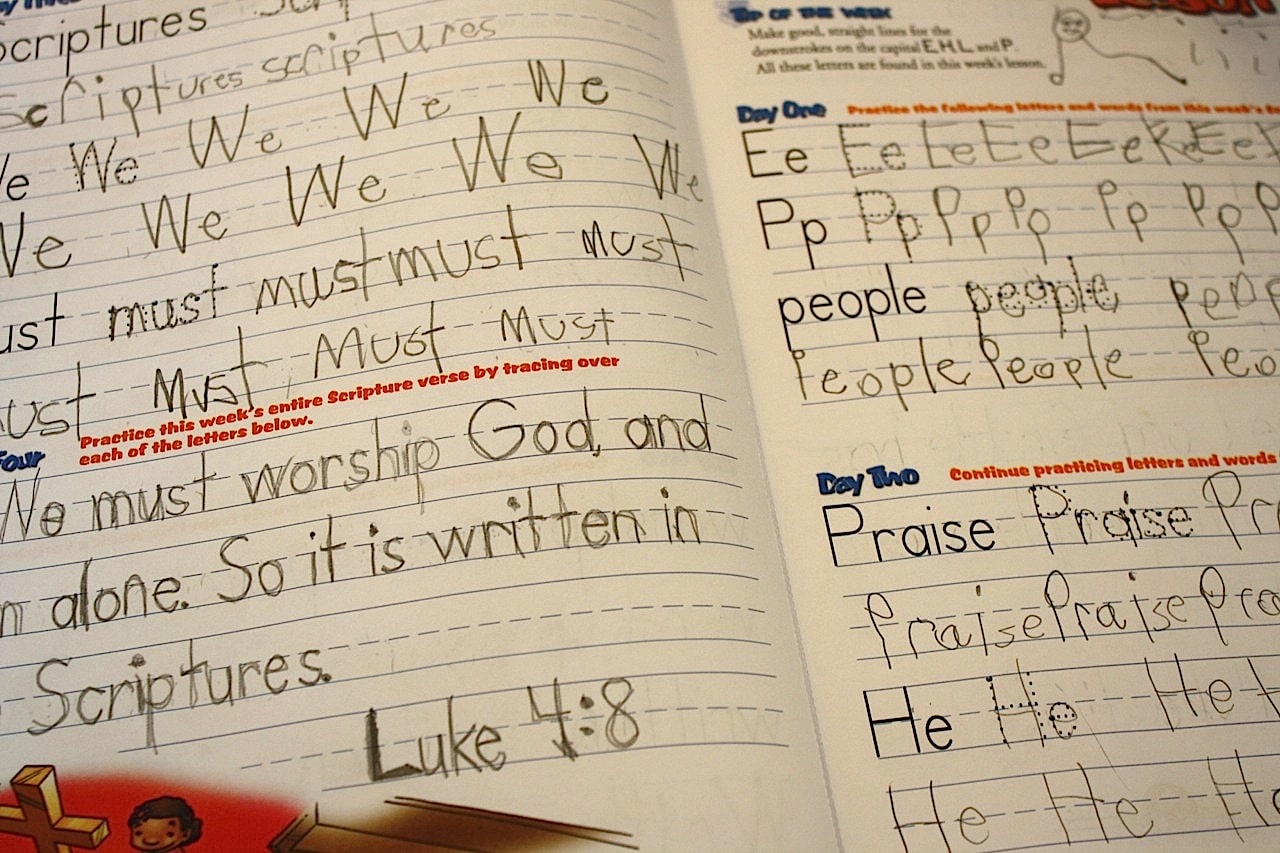 Scriptures
Scriptures scriptures
We We We We We
We We We We We
must must must must must
must Must Must Must
Practice this week's entire Scripture verse by tracing over
each of the letters below.
Four
We must worship God, and
alone. So it is written in
Scriptures.
Luke 4:8
Tip of the Week
Make good, straight lines for the
downstrokes on the capital E, H, L, and P.
All these letters are found in this week's lesson.
Day One Practice the following letters and words from this week's
Ee Ee Ee Ee Ee Ee Ee
Pp Pp Pp Pp Pp Pp P
people people peop
People People Peo
Day Two Continue practicing letters and words
Praise Praise Pra
Praise Praise Pra
He He He H
He He He